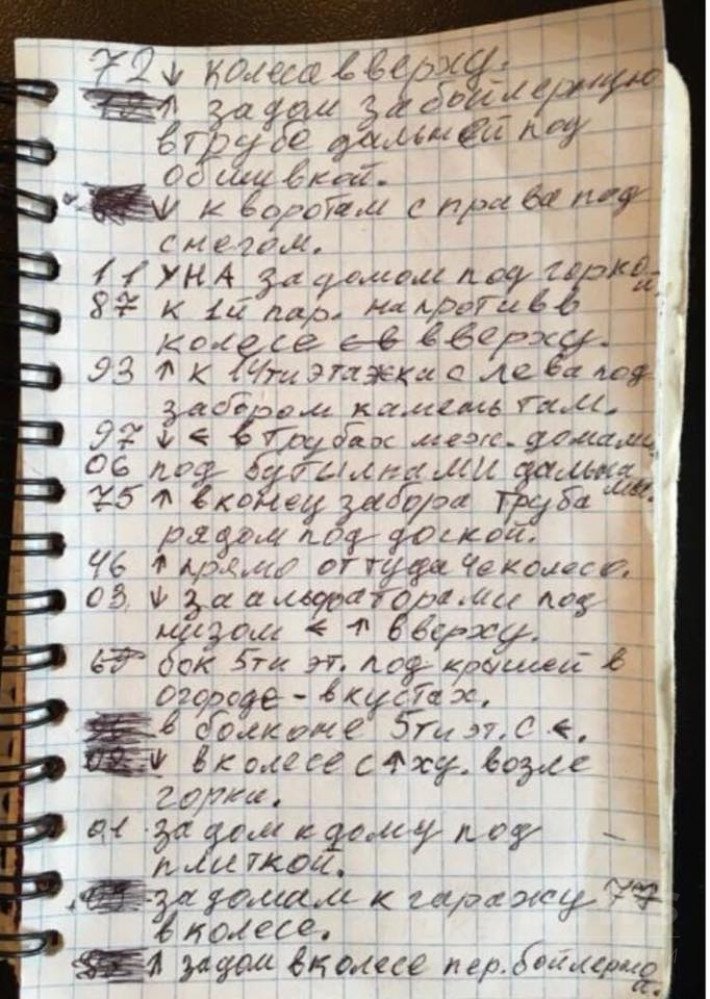 72 ↓ колеса вверху.
↑ задом за бойлерную
в трубе дальней под
обшивкой.
↓ к воротам с права под
снегом.
11 УНА за домом под горкой.
87 к 1й пар. напротив в
колесе вверху.
93 ↑ к 14ти этажки с лева под
забором камень там.
97 ↓ ← в трубах меж. домами.
06 под бутылками дальнами.
75 ↑ в конец забора труба
рядом под доской.
46 ↑ прямо от туда 4е колесо.
03 ↓ за альфаторами под
низом ← ↑ вверху.
бок 5ти эт. под крышей в
огороде - в кустах.
в болконе 5ти эт. с ←.
09 ↓ в колесе с ↑ху. возле
горки.
01 - за дом к дому под
плиткой.
- за домам к гаражу 77
в колесе.
↑ задом в колесе пер. бойлерной.